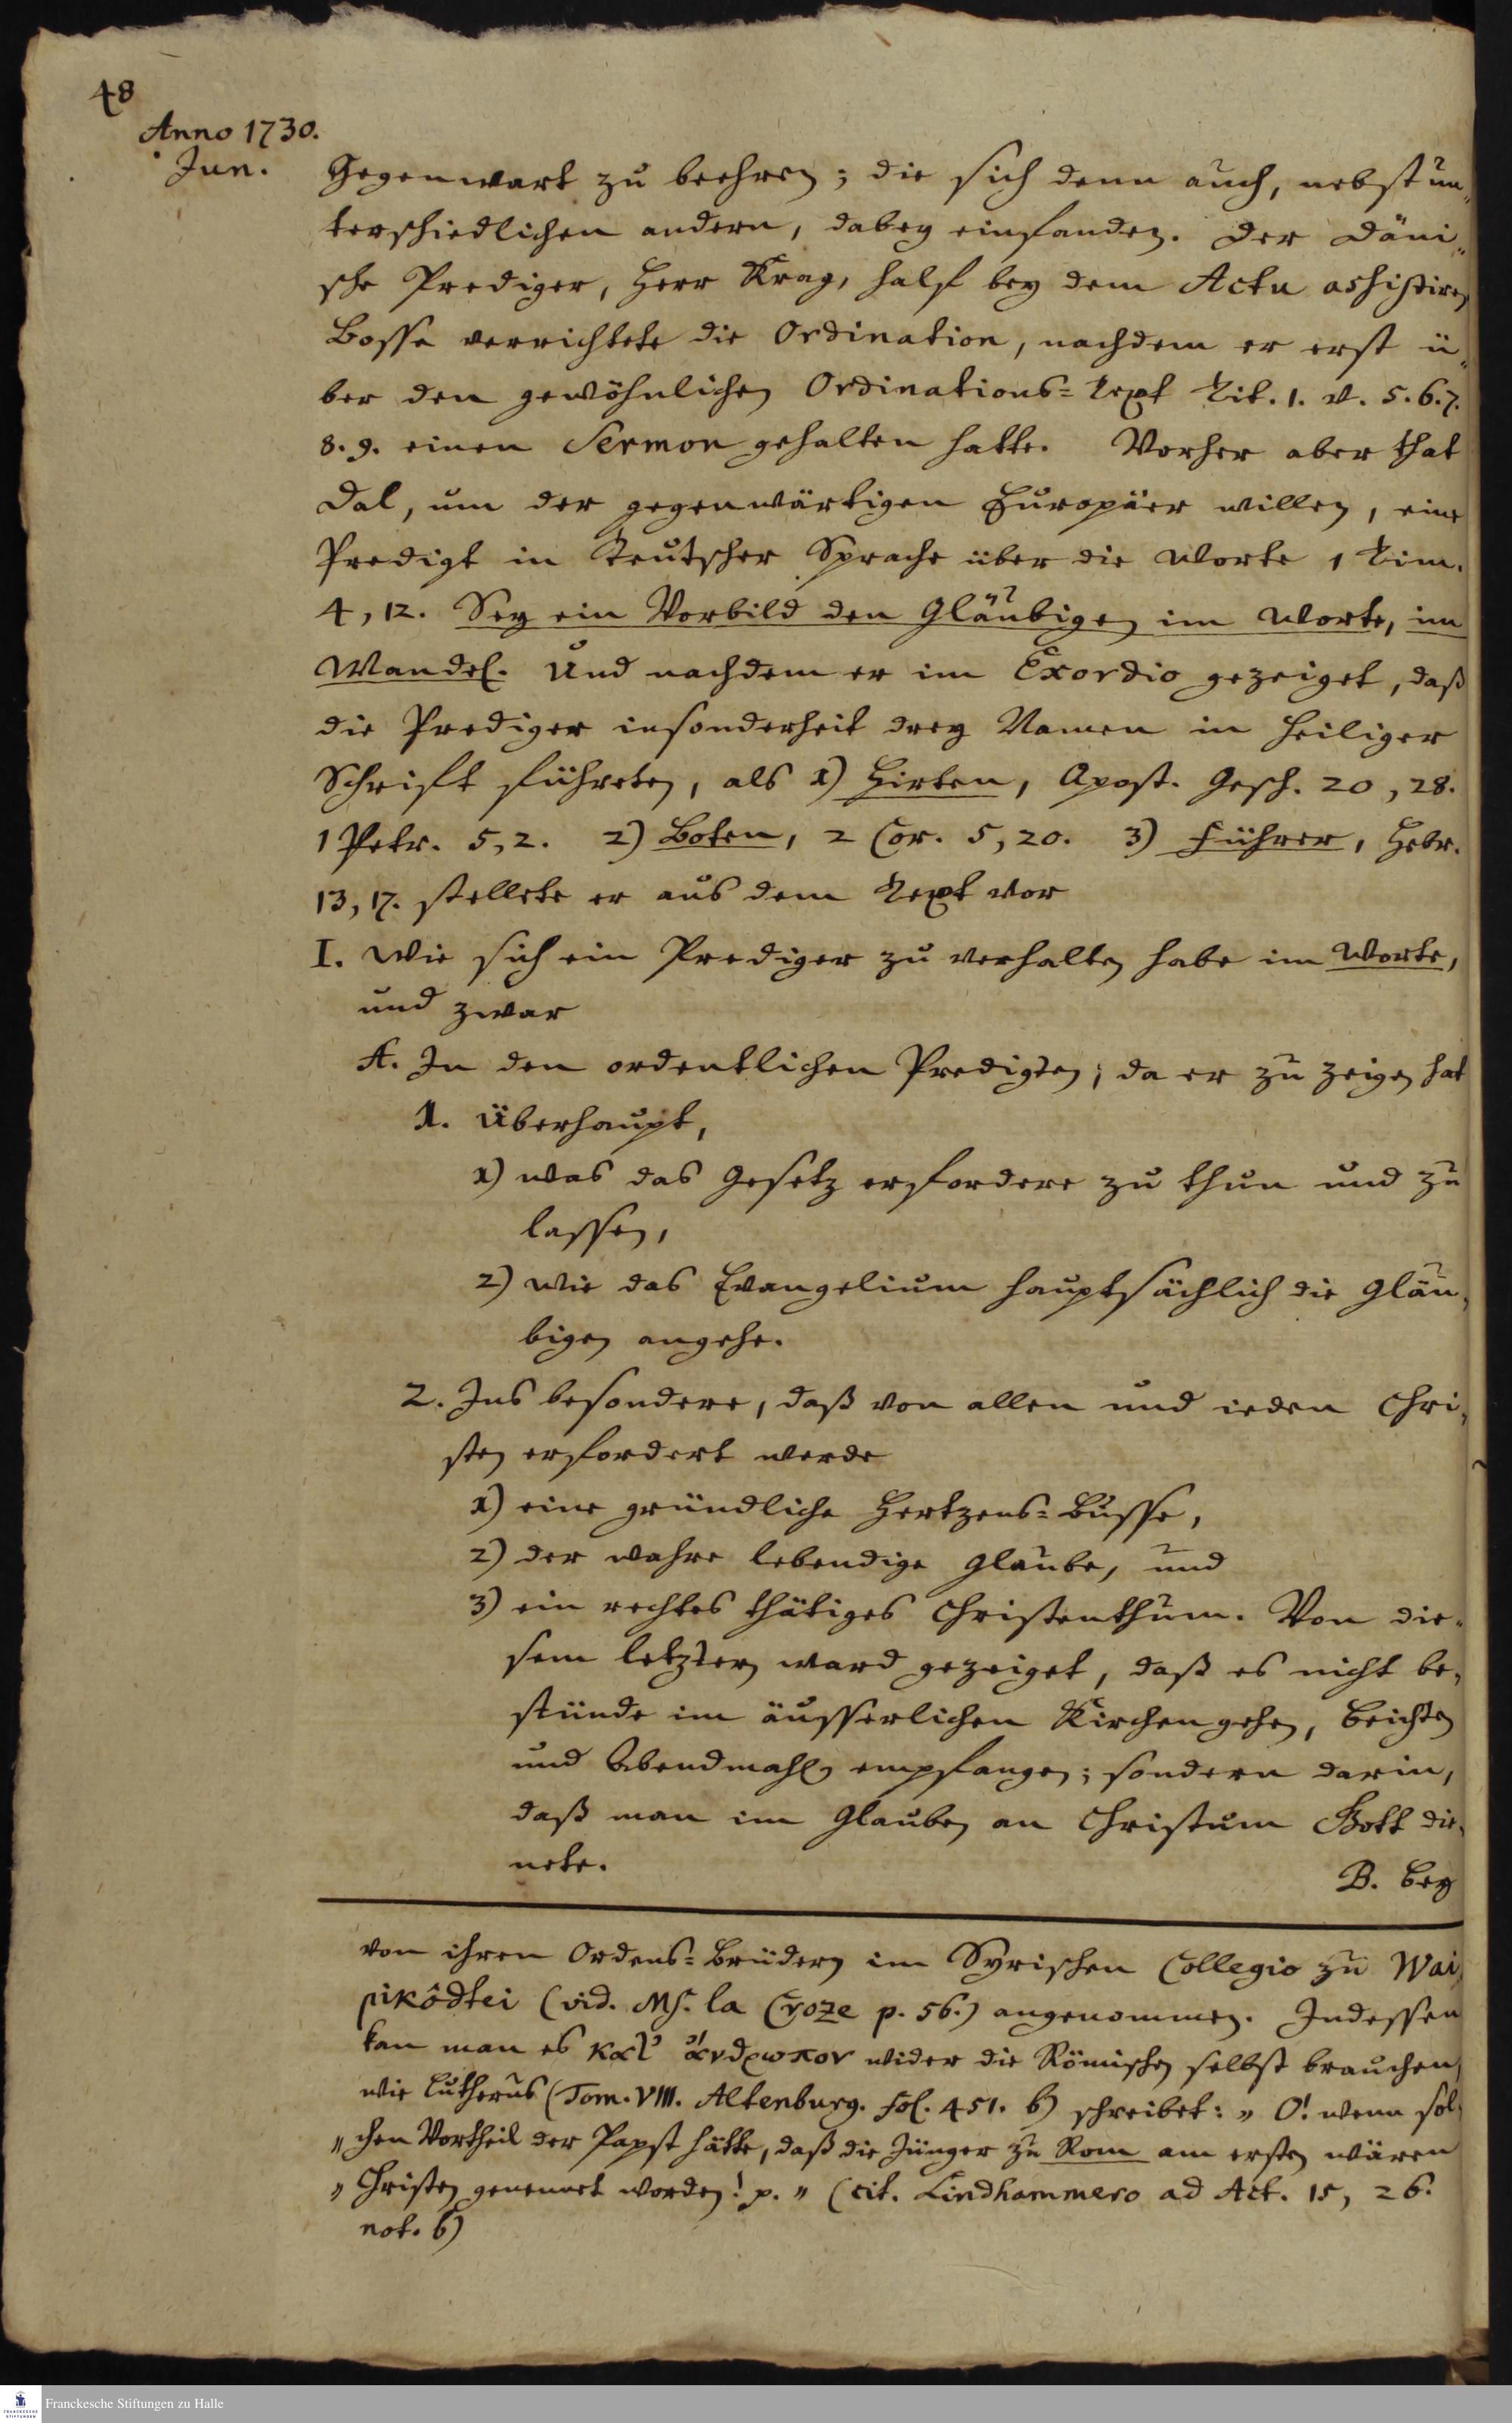 48
Anno 1730.
Jun.
Gegenwart zu beehren; die sich denn auch, nebst un„
terschiedlichen andern, dabey einfanden. Der Däni„
sche Prediger, Herr Krag, half bey dem Actu assistiren
Bosse verrichtete die Ordination, nachdem er erst ü„
ber den gewöhnlichen Ordinations= Text Tit. 1. v. 5. 6. 7.
8. 9. einen Sermon gehalten hatte. Vorher aber that
Dal, um der gegenwärtigen Europäer willen, eine
Predigt in Teutscher Sprache über die Worte 1 Tim.
4, 12. Sey ein Vorbild den Gläubigen im Worte, im
Wandel. Und nachdem er im Exordio gezeiget, daß
die Prediger insonderheit drey Namen in Heiliger
Schrift führeten, als 1) Hirten, Apost. Gesch. 20, 28.
1 Petr. 5, 2. 2) Boten, 2 Cor. 5, 20. 3) Führer, Hebr.
13, 17. stellete er aus dem Text vor
I. Wie sich ein Prediger zu verhalten habe im Worte,
und zwar
A. In den ordentlichen Predigten; da er zu zeigen hat
1. Überhaupt,
1) was das Gesetz erfordere zu thun und zu
lassen,
2) wie das Evangelium hauptsächlich die Gläu„
bigen angehe.
2. Ins besondere, daß von allen und ieden Chri„
sten erfordert werde
1) eine gründliche Hertzens= Busse,
2) der wahre lebendige Glaube, und
3) ein rechtes thätiges Christenthum. Von die„
sem letztern ward gezeiget, daß es nicht be„
stünde im äusserlichen Kirchengehen, Beichten
und Abendmahl empfangen; sondern darin,
daß man im Glauben an Christum Gott die„
nete.
B. Bey
von ihren Ordens= Brüdern im Syrischen Collegio zu Wai„
pikôdtei (vid. Ms. la Croze p. 56.) angenommen. Indessen
kan man es κατ' ἄνθρωπον wider die Römischen selbst brauchen,
wie Lutherus (Tom. VIII. Altenburg. fol. 451. b) schreibet: „ O! wenn sol„
„ chen Vortheil der Papst hätte, daß die Jünger zu Rom am ersten wären
„ Christen genennet worden! p. „ (cit. Lindhammero ad Act. 15, 26.
not. b)
Franckesche Stiftungen zu Halle
FRANCKESCHE
STIFTUNGEN